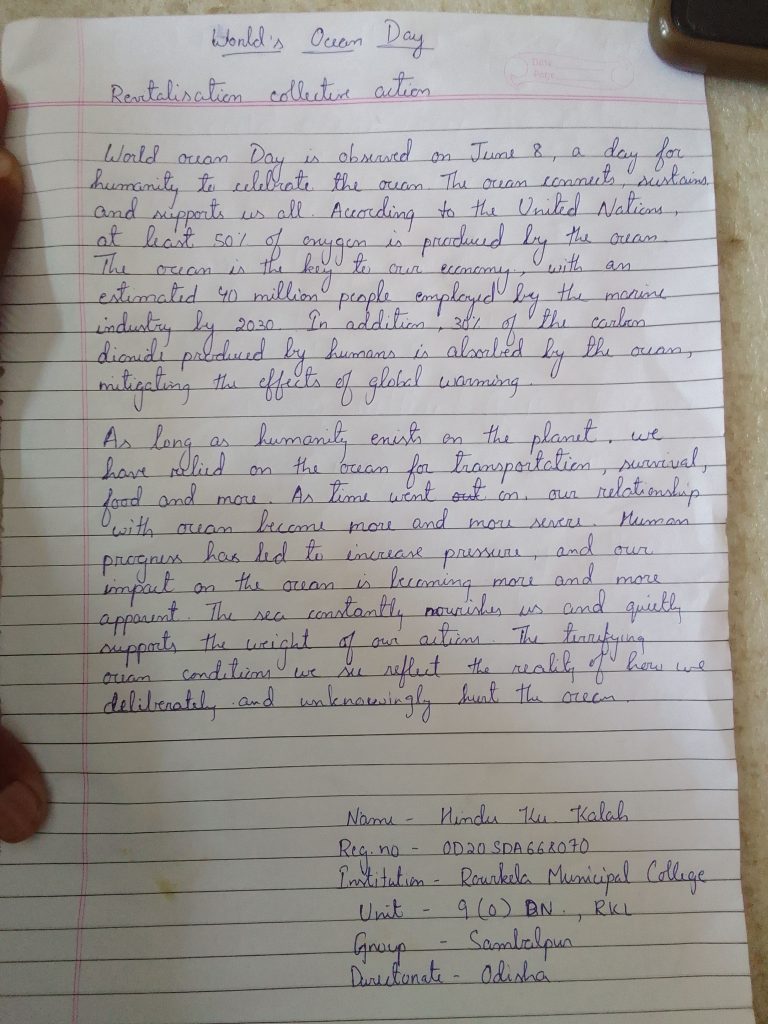 World's Ocean Day
Date
Page
Revitalisation collective action
World ocean Day is observed on June 8, a day for
humanity to celebrate the ocean. The ocean connects, sustains,
and supports us all. According to the United Nations,
at least 50% of oxygen is produced by the ocean.
The ocean is the key to our economy, with an
estimated 40 million people employed by the marine
industry by 2030. In addition, 30% of the carbon
dioxide produced by humans is absorbed by the ocean,
mitigating the effects of global warming.
As long as humanity exists on the planet, we
have relied on the ocean for transportation, survival,
food and more. As time went out on, our relationship
with ocean become more and more severe. Human
progress has led to increase pressure, and our
impact on the ocean is becoming more and more
apparent. The sea constantly nourishes us and quietly
supports the weight of our actions. The terrifying
ocean conditions we see reflect the reality of how we
deliberately and unknowingly hurt the ocean.
Name - Hindu Ku. Kalah
Reg.no - OD20SDA668070
Institution - Rourkela Municipal College
Unit - 9 (O) BN., RKL
Group - Sambalpur
Directorate - Odisha